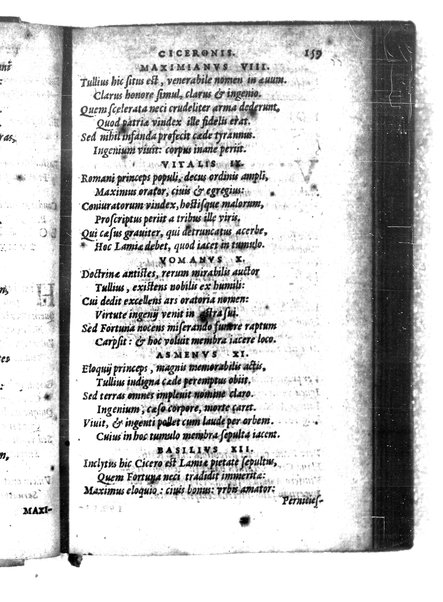 CICERONIS. 159
MAXIMIANVS VIII.
Tullius hic situs est, venerabile nomen in æuum.
Clarus honore simul, clarus & ingenio.
Quem scelerata neci crudeliter arma dederunt,
Quod patriæ vindex ille fidelis erat.
Sed nihil infanda profecit cæde tyrannus.
Ingenium viuit: corpus inane perijt.
VITALIS IX.
Romani princeps populi, decus ordinis ampli,
Maximus orator, ciuis & egregius:
Coniuratorum vindex, hostisque malorum,
Proscriptus perijt a tribus ille viris.
Qui cæsus grauiter, qui detruncatus acerbe,
Hoc Lamiæ debet, quod iacet in tumulo.
VOMANVS X.
Doctrinæ antistes, rerum mirabilis auctor
Tullius, existens nobilis ex humili:
Cui dedit excellens ars oratoria nomen:
Virtute ingenij venit in astra sui.
Sed Fortuna nocens miserando funere raptum
Carpsit: & hoc voluit membra iacere loco.
ASMENVS XI.
Eloquij princeps, magnis memorabilis actis,
Tullius indigna cæde peremptus obijt,
Sed terras omnes impleuit nomine claro.
Ingenium, cæso corpore, morte caret.
Viuit, & ingenti pollet cum laude per orbem.
Cuius in hoc tumulo membra sepulta iacent.
BASILIVS XII.
Inclytus hic Cicero est Lamiæ pietate sepultus,
Quem Fortuna neci tradidit immerita:
Maximus eloquio: ciuis bonus: vrbis amator:
Pernicies-
MAXI-